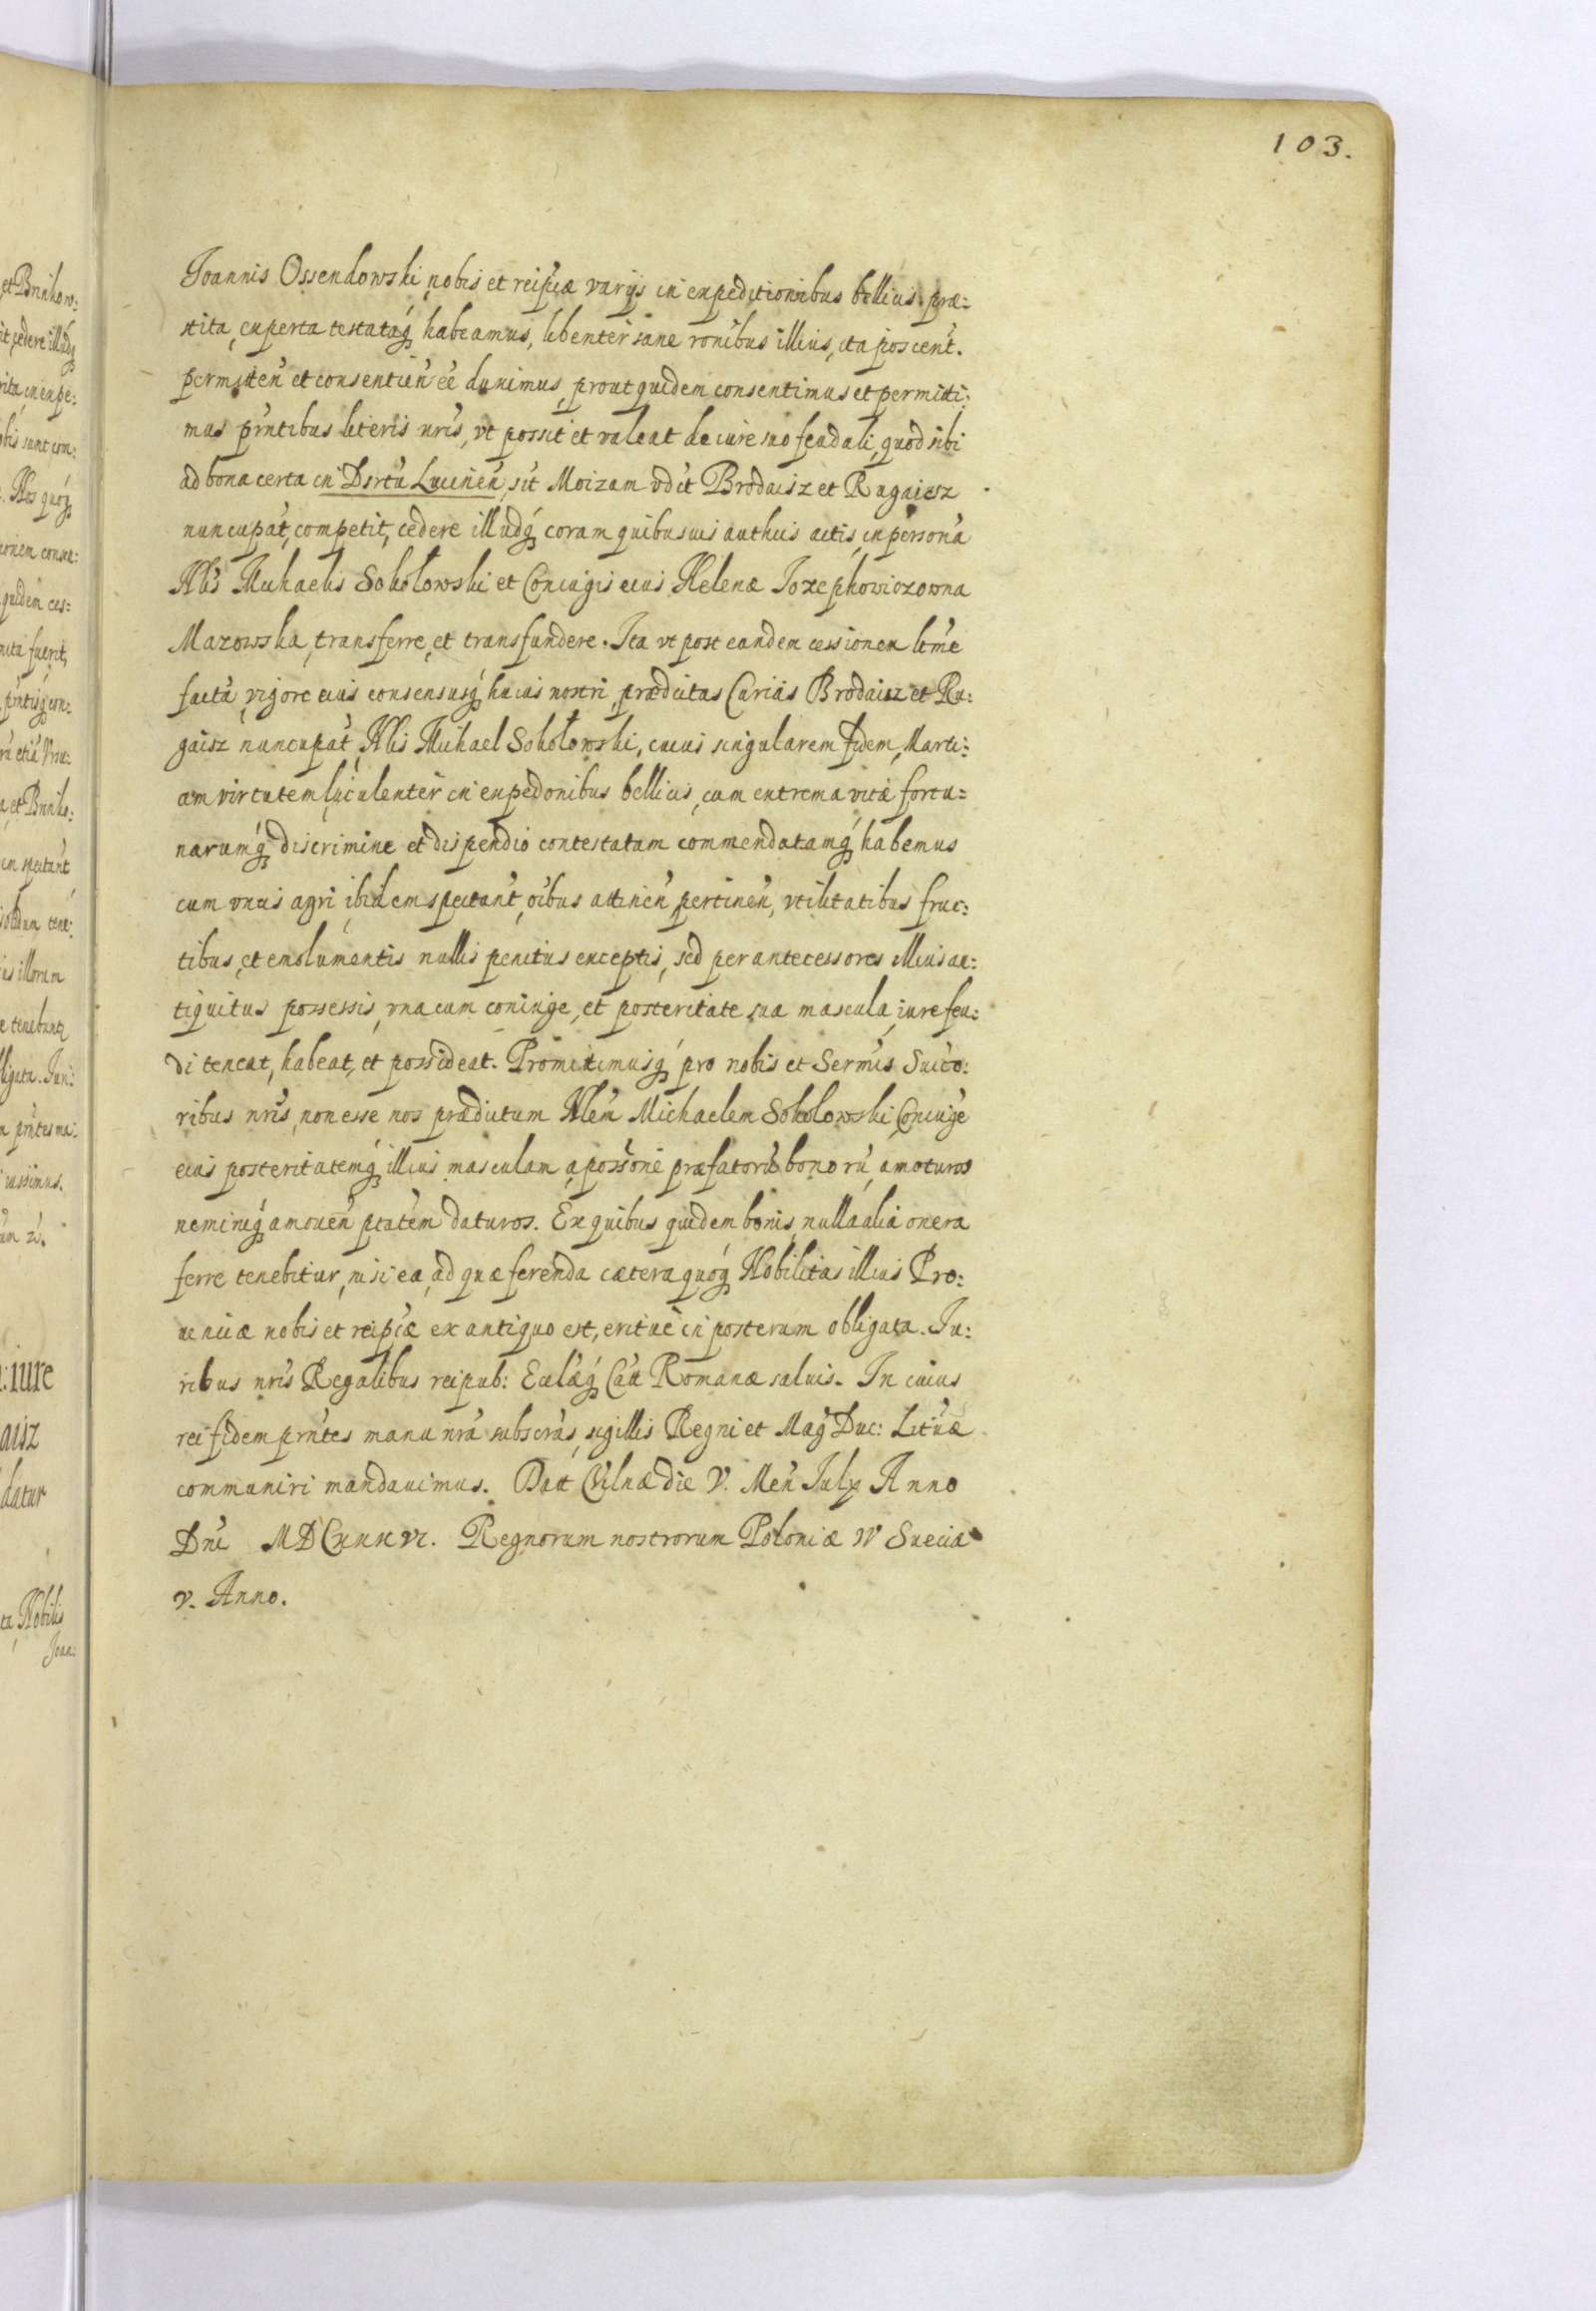 103.
Joannis Ossendowski nobis et reipcæ varijs in expeditionibus bellicis præ:
stita, experta testataq́ habeamus, libenter sane ronibus illius, ita poscent.
permitteñ et consentieñ eé duximus, prout quidem consentimus et permitti:
mus pr̃ntibus literis nr̃is, vt possit et valeat de iure suo feudali, quod sibi
ad bona certa in Dsrtũ Lucineñ, sit Moizam vdit Brodaisz et Rugaisz
nuncupat̃, competit, cedere illudq́ coram quibusuis authcis actis, in personã
Nlis Michaelis Sokołowski et Coniugis eius Helenæ Jozephowiczowna
Mazowska, transferre, et transfundere. Ita vt post eandem cessionem ltme
factã, vigore eius consensusq́ huius nostri, prædictas Curias Brodaisz et Ru:
gaisz nuncupat̃, Nlis Michael Sokołowski, cuius singularem fidem, Marti:
am virtutem luculenter in expedonibus bellicis, cum extrema vitæ fortu:
narumq́ discrimine et dispendio contestatam commendatamq́ habemus
cum vncis agri ibidem spectant̃, oĩbus attineñ pertineñ, vtilitatibus fruc:
tibus, et emolumentis nullis penitus exceptis, sed per antecessores illius an:
tiquitus possessis, vna cum coniuge, et posteritate sua mascula, iure feu:
di teneat, habeat, et possideat. Promittimusq́ pro nobis et Sermis Succo:
ribus nr̃is, non esse nos prædictum Nlem Michaelem Sokolowski, Coniugẽ
eius posteritatemq́ illius masculam a possone præfatorũ bonorũ, amoturos
neminiq́ amoueñ ptatem daturos. Ex quibus quidem bonis, nulla alia onera
ferre tenebitur, nisi ea, ad quæ ferenda cætera quoq́ Nobilitas illius Pro:
uinciæ nobis et reipcæ ex antiquo est, eritue in posterum obligata. Ju:
ribus nr̃is Regalibus reipub: Ecclæq́ Catt Romanæ saluis. In cuius
rei fidem pr̃ntes manu nr̃a subscras, sigillis Regni et Mag Duc: Lituæ
communiri mandauimus. Datt Vilnæ die V. Meñ July Anno
Dni MDCXXXVI. Regnorum nostrorum Poloniæ IV Sueciæ
v. Anno.